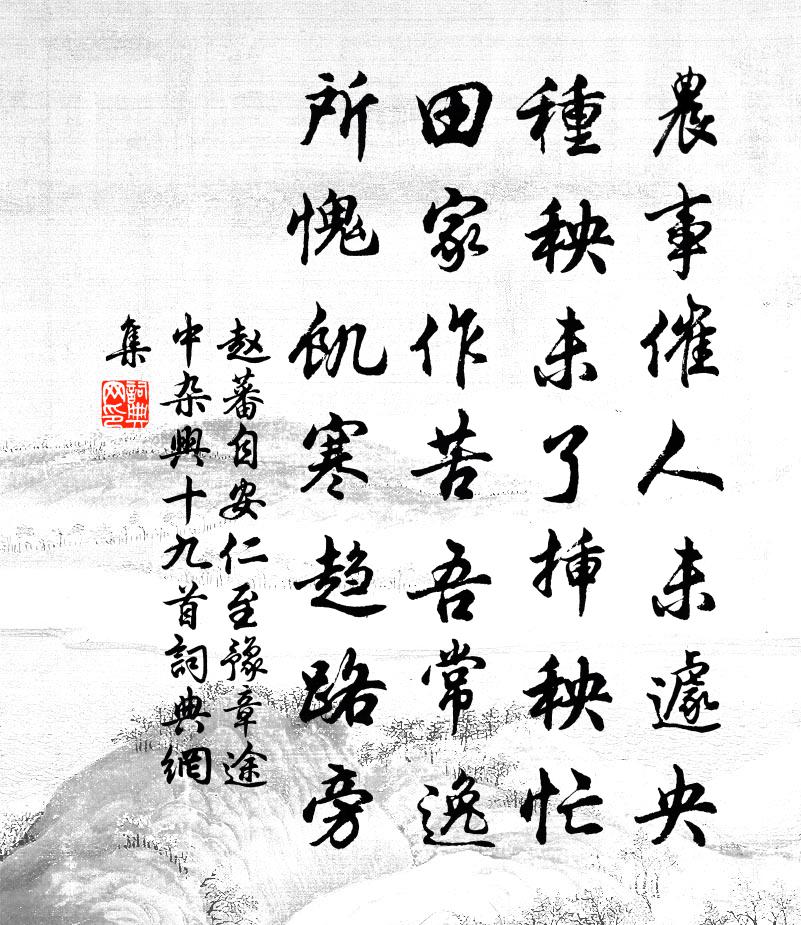 農事催人未遽央
種秧未了揷秧忙
田家作苦吾常逸
所愧飢寒趨路旁
赵蕃自安仁至豫章途
中杂興十九首詞典網
集
詞典
网印